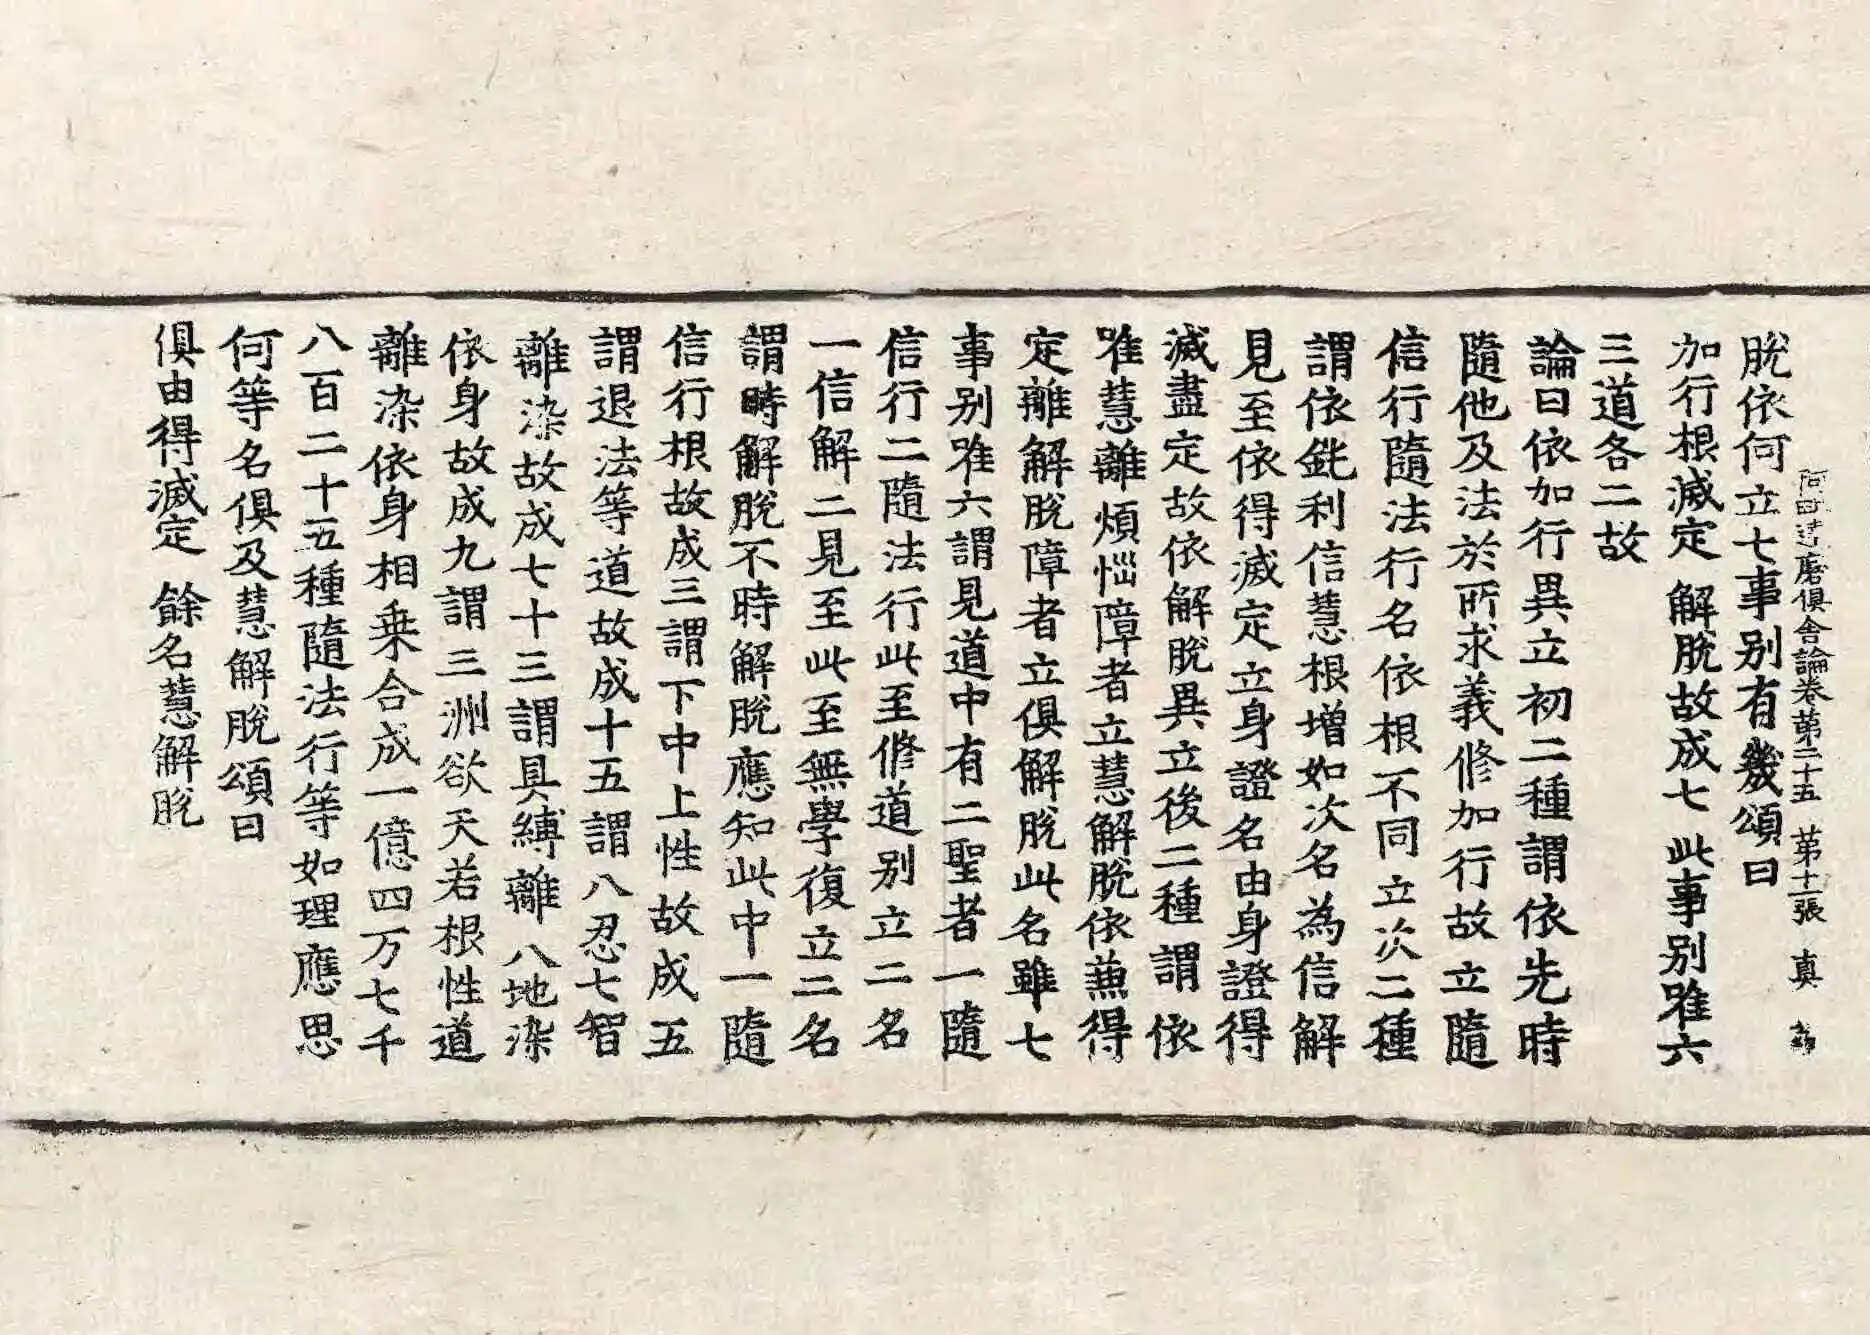 阿毗達磨俱舍論卷第二十五　第十一張　真
脫依何立七事別有幾頌曰
加行根滅定　解脫故成七　此事別唯六
三道各二故
論曰依加行異立初二種謂依先時
隨他及法於所求義修加行故立隨
信行隨法行名依根不同立次二種
謂依鈍利信慧根增如次名為信解
見至依得滅定立身證名由身證得
滅盡定故依解脫異立後二種謂依
唯慧離煩惱障者立慧解脫依兼得
定離解脫障者立俱解脫此名雖七
事別唯六謂見道中有二聖者一隨
信行二隨法行此至修道別立二名
一信解二見至此至無學復立二名
謂時解脫不時解脫應知此中一隨
信行根故成三謂下中上性故成五
謂退法等道故成十五謂八忍七智
離染故成七十三謂具縛離八地染
依身故成九謂三洲欲天若根性道
離染依身相乘合成一億四万七千
八百二十五種隨法行等如理應思
何等名俱及慧解脫頌曰
俱由得滅定　餘名慧解脫